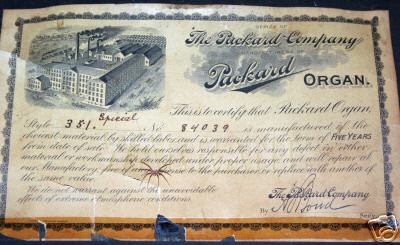 OFFICE OF
The Packard Company
Packard ORGAN.
This is to certify that Packard Organ,
Style 351. Special No 84039 is manufactured of the
choicest material by skilled labor, and is warranted for the term of FIVE YEARS
from date of sale. We hold ourselves responsible for any defect in either
material or workmanship developed under proper usage and will repair at
our Manufactory, free of expense to the purchaser, or replace with another of
the same value.
We do not warrant against the unavoidable
effects of extreme atmospheric conditions.
The Packard Company
By Bond Sec'y.